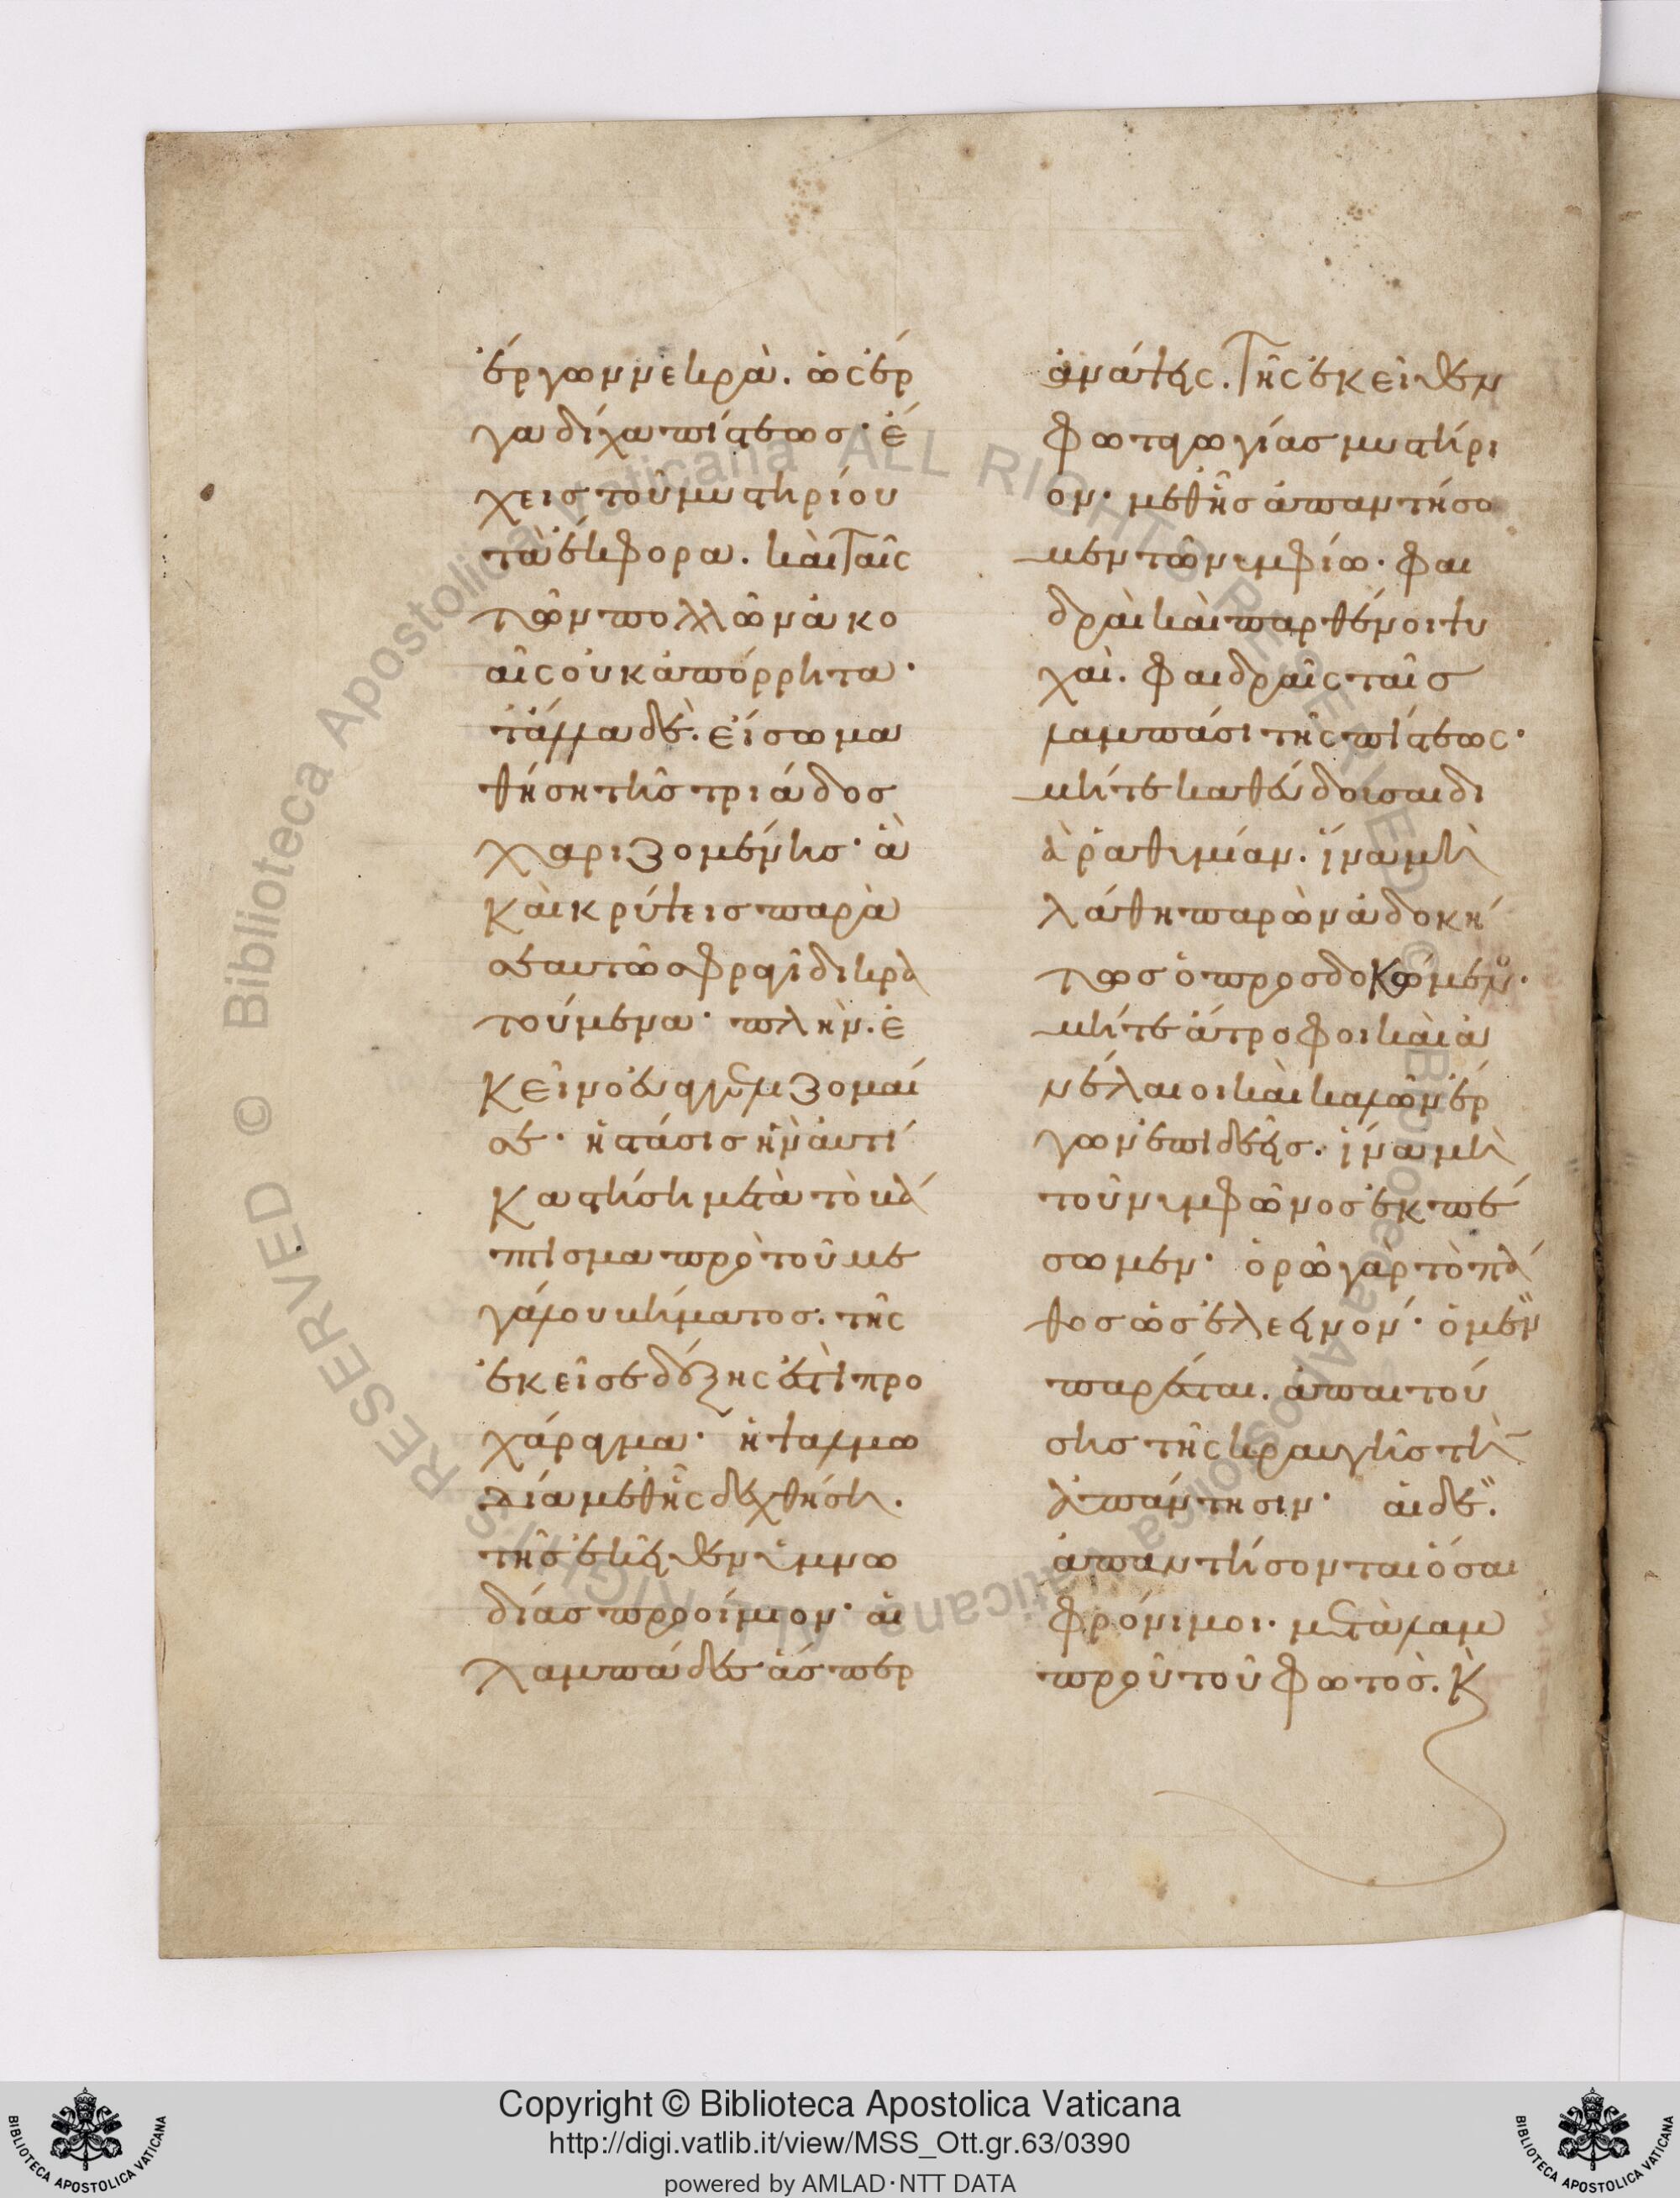 ἔργων νεκρὰ. ὡς ἔρ
γα δίχα πίστεως· ἔ
χεις τοῦ μυστηρίου
τὰ ἔκφορα. καὶ ταῖς
τῶν πολλῶν ἀκο
αῖς οὐκ ἀπόρρητα·
τἄλλα δὲ. εἴσω μα
θήση τῆς τριάδος
χαριζομένης· ἃ
καὶ κρύψεις παρὰ
σεαυτῷ σφραγῖδι κρα
τούμενα· πλὴν. ἐ
κεῖνο εὐαγγελίζομαί
σε· ἡ στάσις ἣν αὐτί
κα στήσῃ μετὰ τὸ βά
πτισμα πρὸ τοῦ με
γάλου βήματος. τῆς
ἐκεῖσε δόξης ἐστὶ προ
χάραγμα· ἡ ψαλμω
δία μεθ ἧς δεχθήσῃ.
τῆς ἐκεῖθεν ὑμνω
δίας προοίμιον· αἱ
λαμπάδες ἅσπερ
ἀνάψεις. τῆς ἐκεῖθεν
φωταγωγίας μυστήρι
ον· μεθ ἧς ἀπαντήσο
μεν τῷ νυμφίω· φαι
δραὶ καὶ παρθένοι ψυ
χαὶ. φαιδραῖς ταῖς
λαμπάσι τῆς πίστεως·
μήτε καθεύδουσαι δι
ὰ ῥαθυμίαν. ἵνα μὴ
λάθη παρὼν ἀδοκή
τως ὁ προσδοκώμενος.
μήτε ἄτροφοι καὶ ἀ
νέλαιοι καὶ καλῶν ἔρ
γων ἐπιδεεῖς. ἵνα μὴ
τοῦ νυμφῶνος ἐκπέ
σωμεν· ὁρῶ γὰρ τὸ πά
θος ὡς ἐλεεινόν· ὁ μὲν
παρέσται. ἀπαιτού
σης τῆς κραυγῆς τὴν
ἀπάντησιν· αἱ δὲ.
ἀπαντήσονται ὅσαι
φρόνιμοι. μετὰ λαμ
προῦ τοῦ φωτὸς. κ̀
Copyright © Biblioteca Apostolica Vaticana
http://digi.vatlib.it/view/MSS_Ott.gr.63/0390
powered by AMLAD·NTT DATA
BIBLIOTECA APOSTOLICA VATICANA
BIBLIOTECA APOSTOLICA VATICANA
© Biblioteca Apostolica Vaticana ALL RIGHTS RESERVED
© Biblioteca Apostolica Vaticana ALL RIGHTS RESERVED